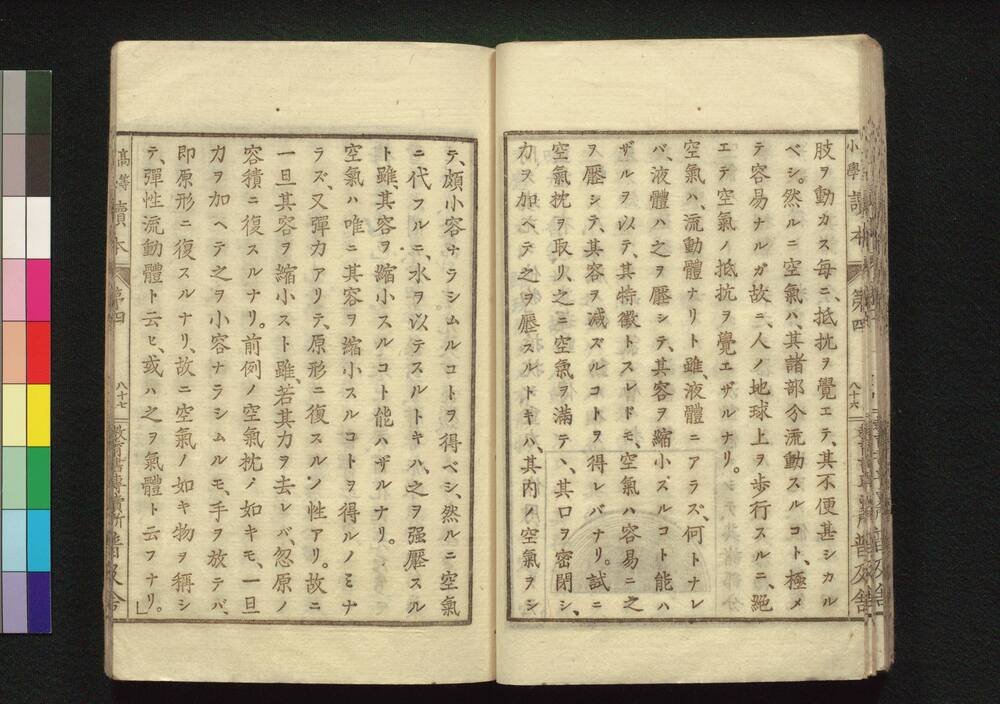 小學讀本
第四
八十六
普及舍
肢ヲ動カス毎ニ、抵抗ヲ覺エテ、其不便甚シカル
ベシ。然ルニ空氣ハ、其諸部分流動スルコト、極メ
テ容易ナルガ故ニ、人ノ地球上ヲ歩行スルニ、絕
エテ空氣ノ抵抗ヲ覺エザルナリ。
空氣ハ、流動體ナリト雖、液體ニアラズ、何トナレ
バ、液體ハ之ヲ壓シテ、其容ヲ縮小スルコト能ハ
ザルヲ以テ、其特徵トスレドモ、空氣ハ容易ニ之
ヲ壓シテ、其容ヲ減ズルコトヲ得レバナリ。試ニ
空氣枕ヲ取リ、之ニ空氣ヲ滿テヽ、其口ヲ密閉シ、
力ヲ加ヘテ之ヲ壓スルトキハ、其内ノ空氣ヲシ
テ、頗小容ナラシムルコトヲ得ベシ、然ルニ空氣
ニ代フルニ、水ヲ以テスルトキハ、之ヲ强壓スル
ト雖、其容ヲ縮小スルコト能ハザルナリ。
空氣ハ唯ニ其容ヲ縮小スルコトヲ得ルノミナ
ラズ、又彈力アリテ、原形ニ復スルノ性アリ。故ニ
一旦其容ヲ縮小スト雖、若其力ヲ去レバ、忽原ノ
容積ニ復スルナリ。前例ノ空氣枕ノ如キモ、一旦
力ヲ加ヘテ之ヲ小容ナラシムルモ、手ヲ放テバ、
即原形ニ復スルナリ、故ニ空氣ノ如キ物ヲ稱シ
テ、彈性流動體ト云ヒ、或ハ之ヲ氣體ト云フナリ。」
高等讀本
第四
八十七
教育書專賣所普及舍